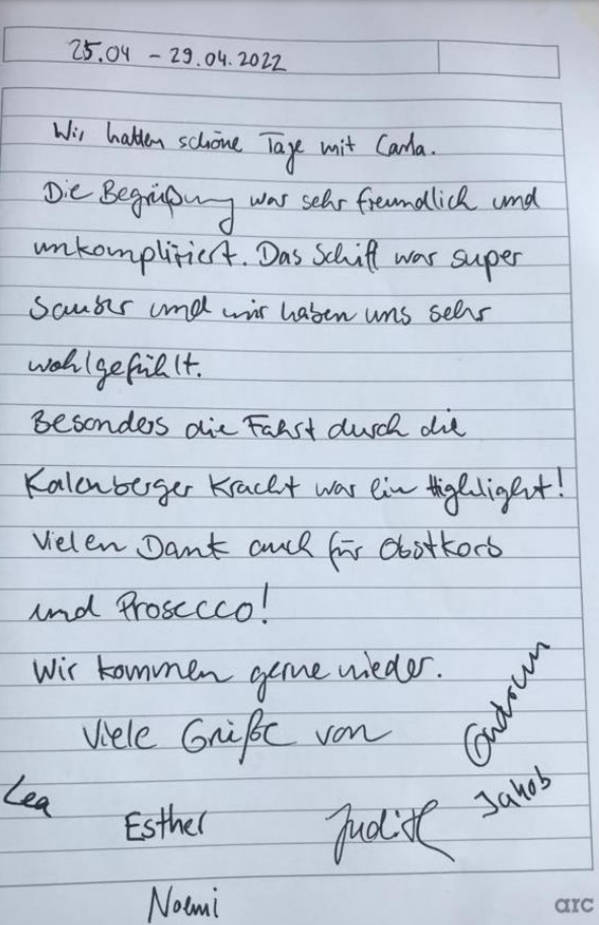 25.04 - 29.04.2022
Wir hatten schöne Tage mit Carla.
Die Begrüßung war sehr freundlich und
unkompliziert. Das Schiff war super
sauber und wir haben uns sehr
wohlgefühlt.
Besonders die Fahrt durch die
Kalenberger Kracht war ein Highlight!
Vielen Dank auch für Obstkorb
und Prosecco!
Wir kommen gerne wieder.
Viele Grüße von
Gudrun
Jakob
Lea
Esther
Judith
Noemi
arc